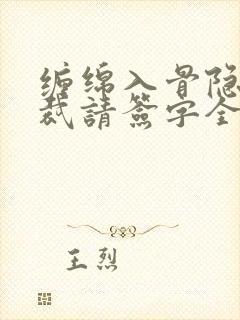 缠绵入骨隐
裁請簽字全
王烈